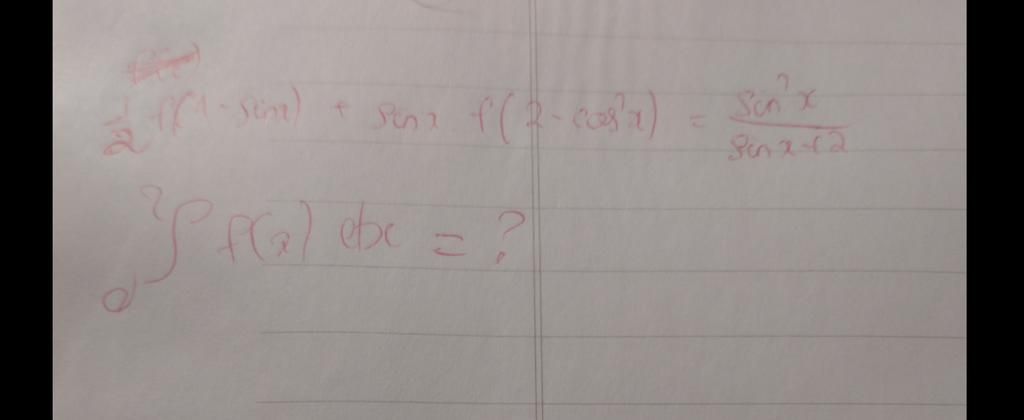 1/2 f(1 - sinx) + sin x f(2 - cos²x) = sin²x / sin x + 2
∫₀² f(x) dx = ?